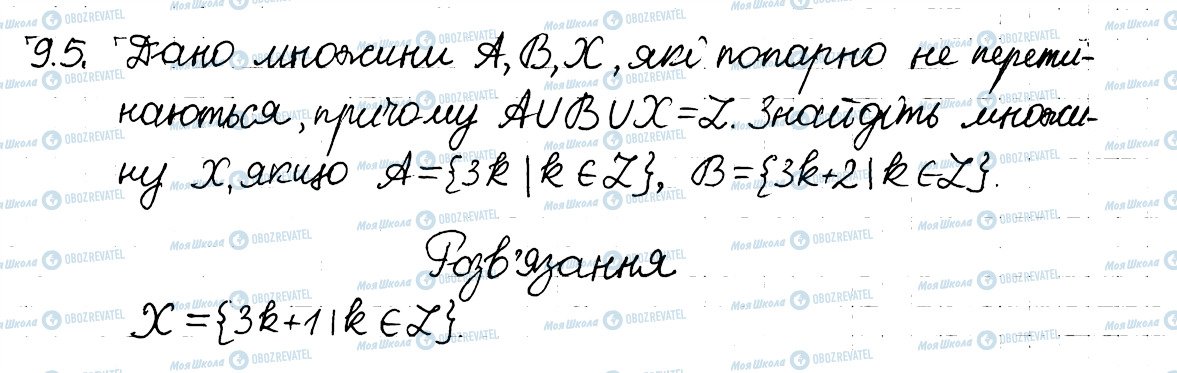 9.5. Дано множини A, B, X, які попарно не перети-
наються, причому A∪B∪X=Z. Знайдіть множи-
ну X, якщо A={3k | k∈Z}, B={3k+2 | k∈Z}.
Розв'язання
X={3k+1 | k∈Z}.